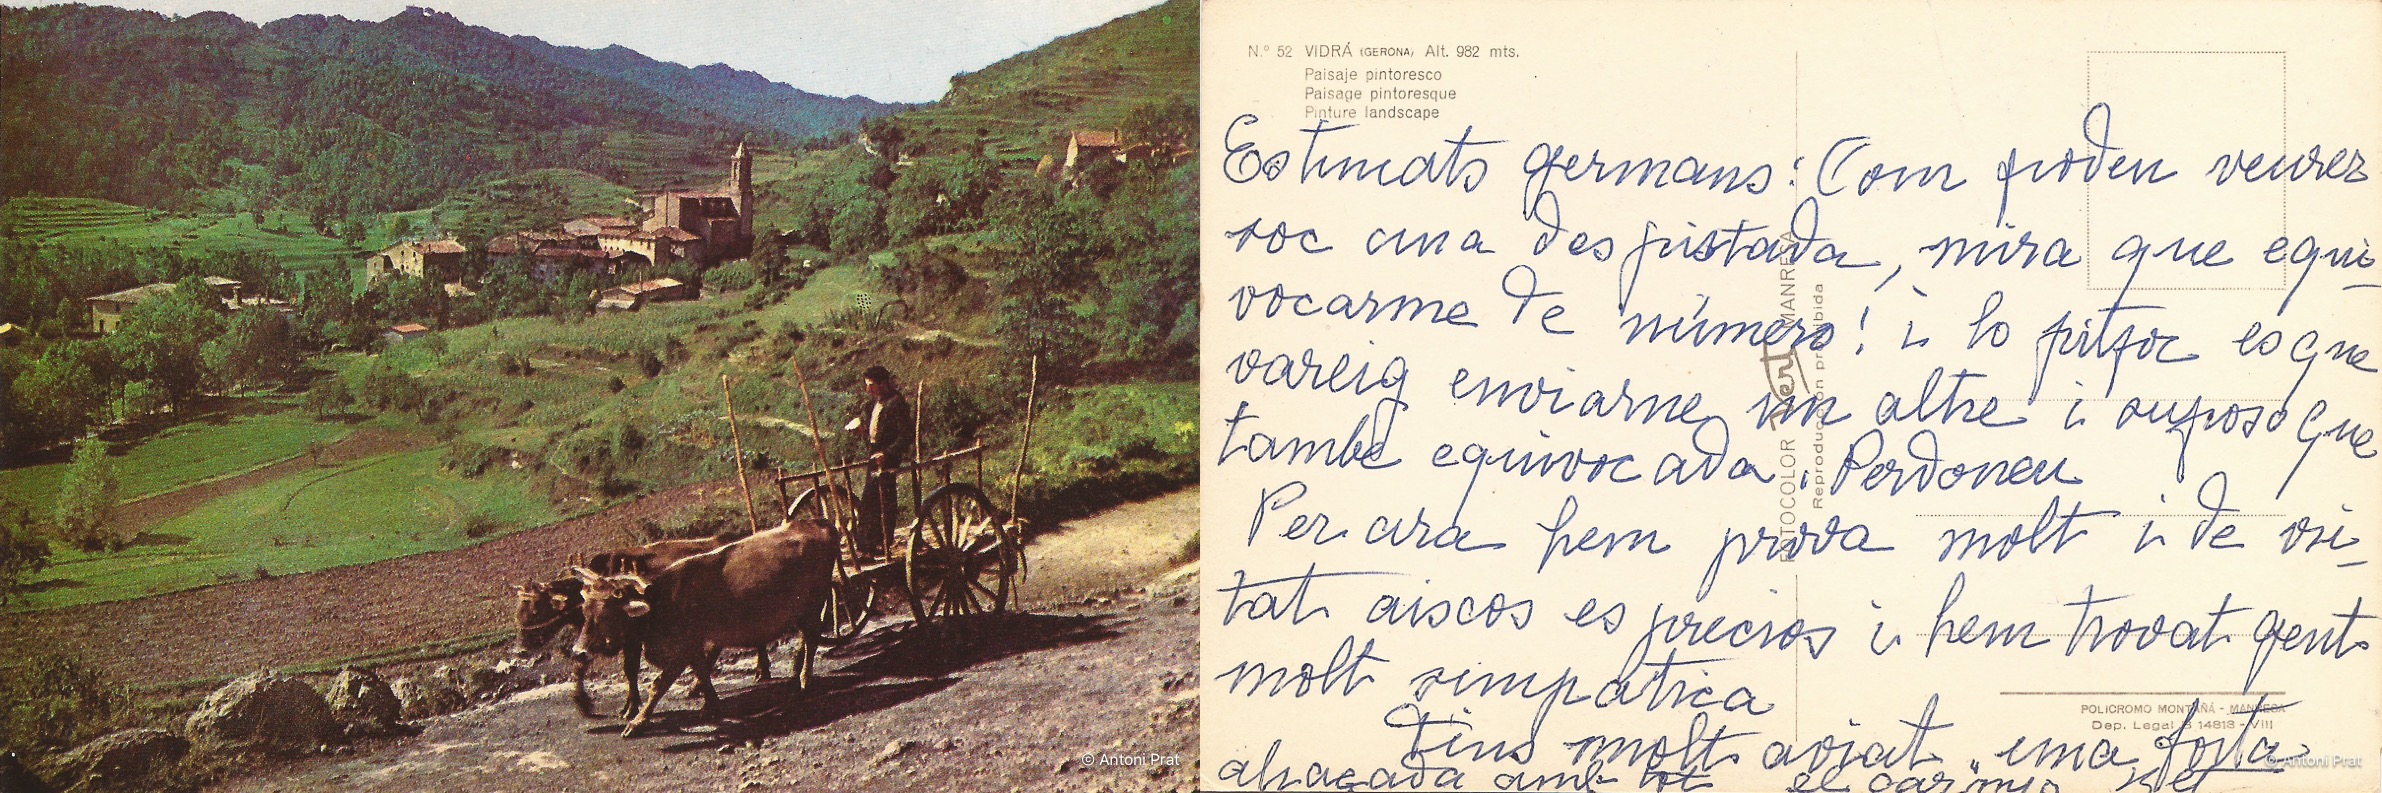 © Antoni Prat
N.º 52 VIDRÁ (GERONA) Alt. 982 mts.
Paisaje pintoresco
Paisage pintoresque
Pinture landscape
Estimats germans: Com poden veurer
soc una despistada, mira que equi-
vocarme de número! i lo pitjor es que
vareig enviarne un altre i suposo que
tambe equivocada. Perdoneu
Per ara hem prova molt i de visi-
tat aiscos es precios i hem trovat gent
molt simpatica
Fins molt aviat. una forta
abraçada amb tot el carinyo
FOTOCOLOR MANRESA
Reproducción prohibida
POLICROMO MONTAÑÁ - MANRESA
Dep. Legal B 14813 - VIII
© Antoni Prat